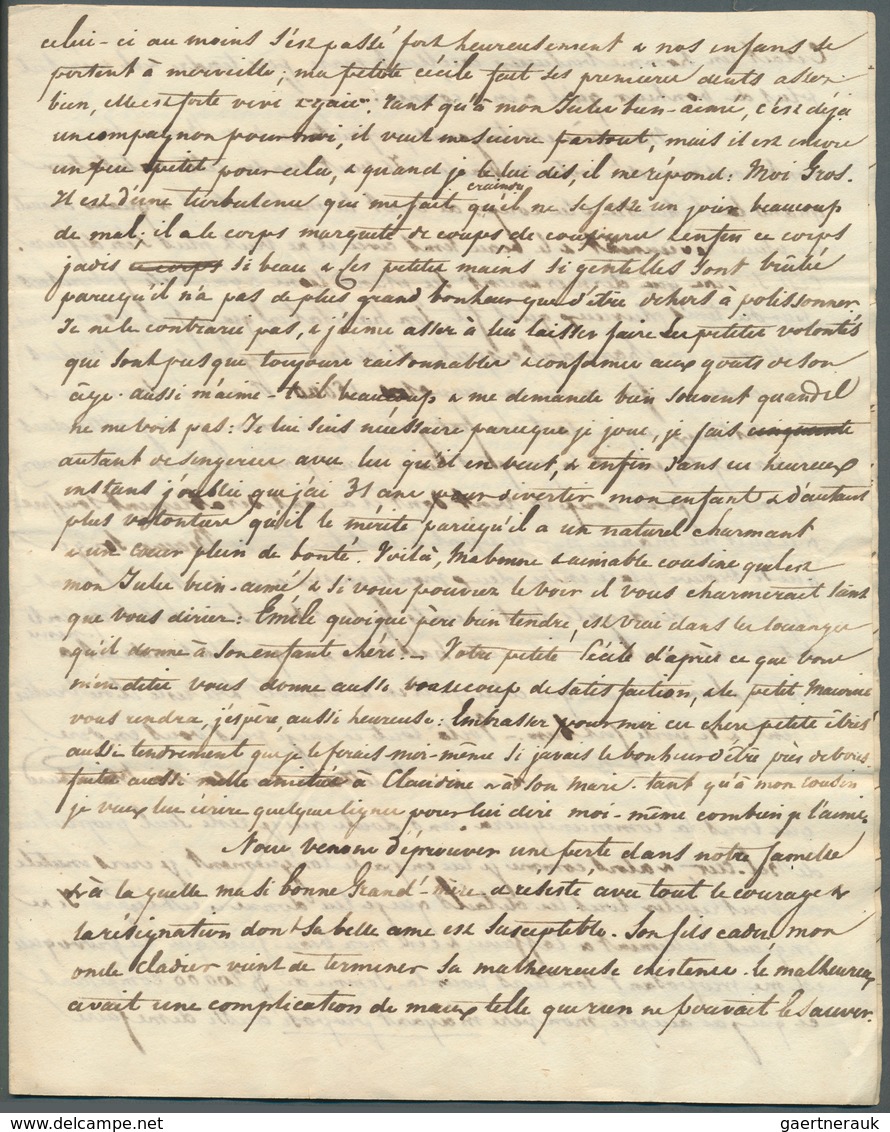 celui-ci au moins s'est passé fort heureusement & nos enfans se
portent à merveille; ma petite cécile fait ses premières dents assez
bien, elle est forte vive & gaie. Tant qu'à mon Jules bien-aimé, c'est déja
un compagnon pour moi, il veut me suivre partout, mais il est encore
un peu petit pour cela, & quand je le lui dis, il me répond: Moi Gros.
Il est d'une turbulence qui me fait craindre qu'il ne se fasse un jour beaucoup
de mal; il a le corps marqueté de coups de & enfin ce corps
jadis ce corps si beau & ses petites mains si gentilles sont brûlés
parcequ'il n'a pas de plus grand bonheur que d'être dehors à polissonner.
Je ne le contrarie pas, & j'aime assez à lui laisser faire ses petites volontés
que sont presque toujours raisonnables & conformes aux goûts de son
âge. aussi m'aime-t-il beaucoup & me demande bien souvent quand il
ne me voit pas: Je lui suis nécessaire parceque je joue, je fais cinquante
autant de singeries avec lui qu'il en veut, & enfin dans ces heureux
instans j'oublie que j'ai 31 ans pour divertir mon enfant & d'autant
plus volontiers qu'il le mérite parcequ'il a un naturel charmant
& un cœur plein de bonté. Voilà, ma bonne & aimable cousine quel est
mon Jules bien-aimé & si vous pouviez le voir il vous charmerait tant
que vous diriez: Emile quoique père bien tendre, est vrai dans les louanges
qu'il donne à son enfant chéri. — Votre petite Cécile d'après ce que vous
m'en dites vous donne aussi beaucoup de satisfaction, & le petit Maurice
vous rendra, j'espère, aussi heureuse: Embrassez pour moi ces chers petits êtres
aussi tendrement que je le ferais moi-même si j'avais le bonheur d'être près de vous.
faites aussi mille amitiés à Claudine & à son Mari. tant qu'à mon cousin
je veux lui écrire quelques lignes pour lui dire moi-même combien je l'aime.
Nous venons d'éprouver une perte dans notre famille
& à la quelle ma si bonne Grand'-mère a résisté avec tout le courage &
la résignation dont sa belle ame est susceptible. Son fils cadet mon
oncle Cladier vient de terminer sa malheureuse existence. le malheureux
avait une complication de maux telle que rien ne pouvait le sauver.
gaertnerauk